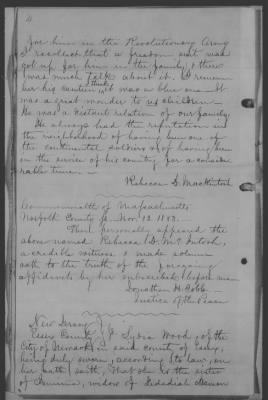 for him in the Revolutionary Army
I recollect that a freedom suit was
got up for him in the family & there
was much talk about it. I remem
ber his canteen, I think, it was a blue one - It
was a great wonder to us children -
He was a distant relation of our family.
He always had the reputation in
the neighborhood of having been one of
the continental soldiers & of having been
in the service of his country for a conside
rable time. -
Rebecca D. Mackintosh
Commonwealth of Massachusetts
Norfolk County ss. Nov. 12. 1853.
Then personally appeared the
above named Rebecca D. McIntosh,
a credible witness & made solemn
oath to the truth of the foregoing
affidavit by her subscribed before me.
Jonathan H. Cobb
Justice of the Peace
New Jersey
Essex County I Lydia Wood, of the
City of Newark in said county of Essex,
being duly sworn, according to law, on
her oath, saith, that she is the sister
of Jemima, widow of